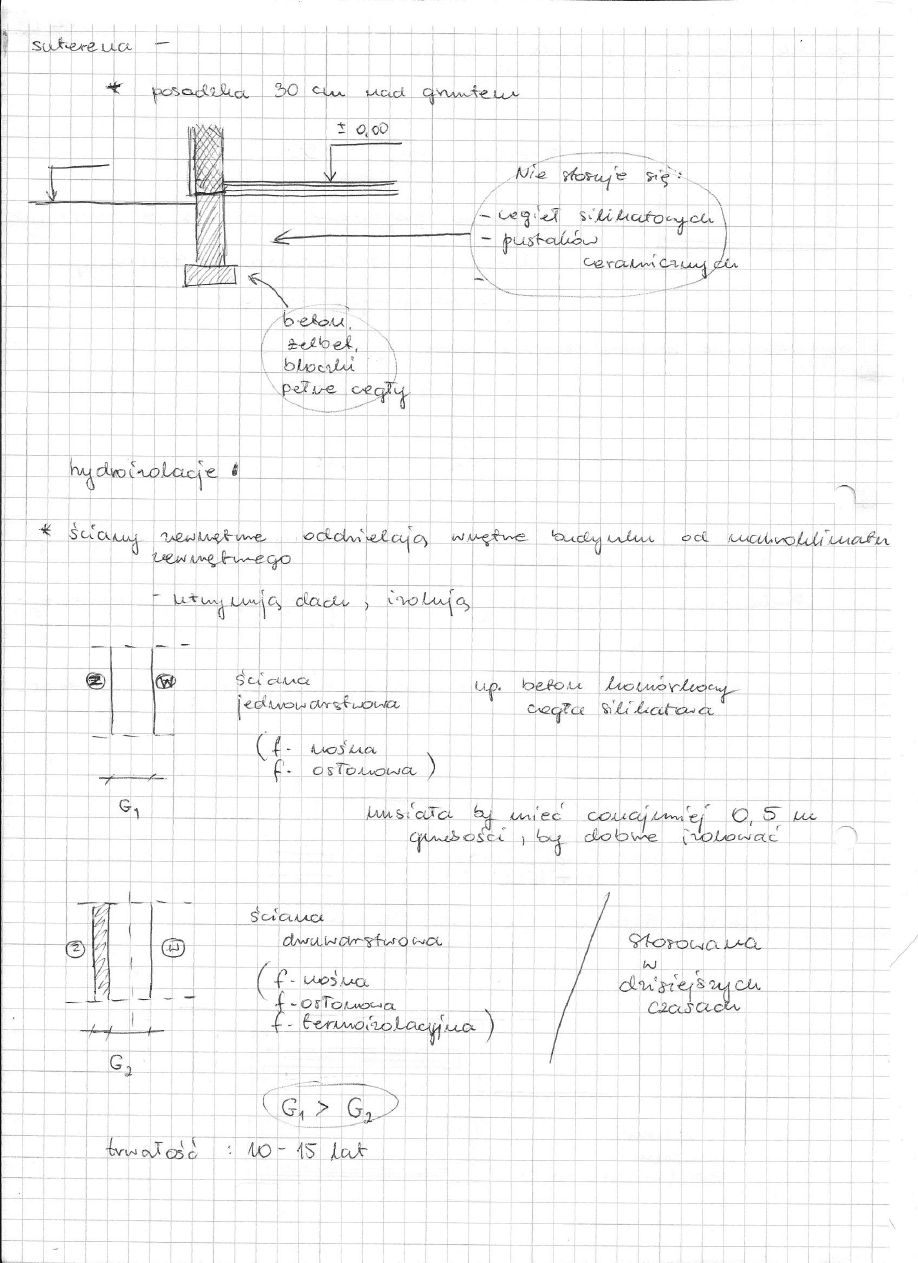 suterena -
* posadzka 30 cm nad gruntem
± 0,00
Nie stosuje się:
- cegieł silikatowych
- pustaków
ceramicznych
-
beton,
żelbet,
bloczki
pełne cegły
hydroizolacje
* ściany zewnętrzne oddzielają wnętrze budynku od makroklimatu
zewnętrznego
- utrzymują dach, izolują
Z W
ściana
jednowarstwowa
np. beton komórkowy
cegła silikatowa
(f. nośna
f. osłonowa)
G1
musiała by mieć conajmniej 0,5 m
grubości, by dobrze izolować
Z W
ściana
dwuwarstwowa
(f-nośna
f-osłonowa
f-termoizolacyjna)
stosowana
w
dzisiejszych
czasach
G2
G1 > G2
trwałość : 10-15 lat